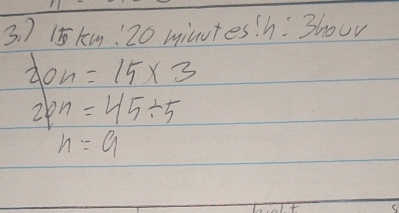 3.) 15 km : 20 minutes : n : 3hour
20n = 15 × 3
20n = 45 ÷ 5
n = 9